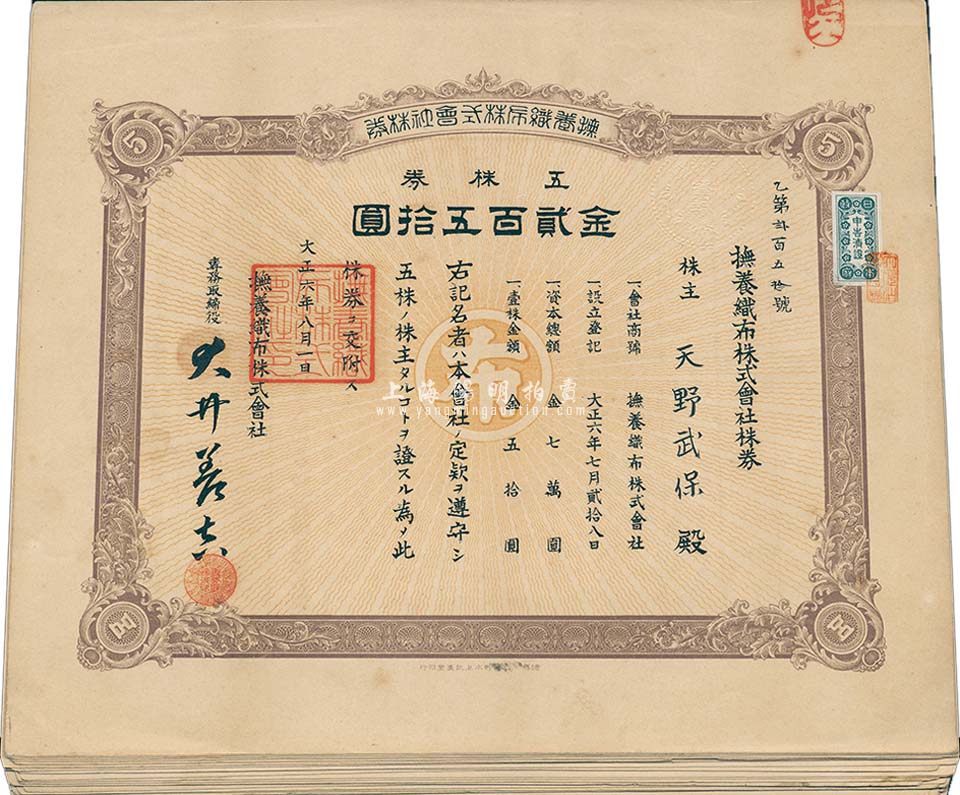 撫養織布株式會社株券
五株券
金貳百五拾圓
5
5
乙第貳百五拾號
撫養織布株式會社株券
株主 天野武保殿
一會社商號 撫養織布株式會社
一設立登記 大正六年七月貳拾八日
一資本總額 金七萬圓
一壹株金額 金五拾圓
右記名者ハ本會社ノ定款ヲ遵守シ
五株ノ株主タルコトヲ證スル為メ此
株券ヲ交附ス
大正六年八月一日
撫養織布株式會社
專務取締役 大井善吉
五
五
上海陽明拍賣
www.yangmingauction.com